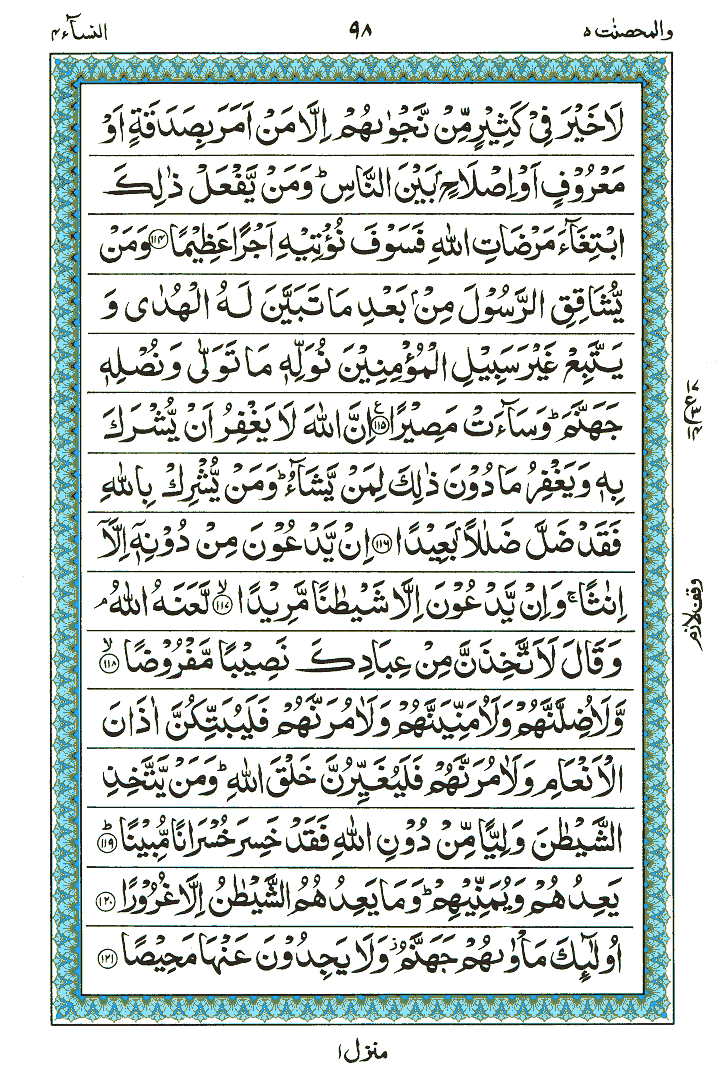 والمحصنت ٥ ٩٨ النسآء ٤
لَا خَيْرَ فِيْ كَثِيْرٍ مِّنْ نَّجْوٰىهُمْ اِلَّا مَنْ اَمَرَ بِصَدَقَةٍ اَوْ
مَعْرُوْفٍ اَوْ اِصْلَاحٍۭ بَيْنَ النَّاسِ ؕ وَمَنْ يَّفْعَلْ ذٰلِكَ
ابْتِغَآءَ مَرْضَاتِ اللّٰهِ فَسَوْفَ نُؤْتِيْهِ اَجْرًا عَظِيْمًا ﴿۱۱۴﴾ وَمَنْ
يُّشَاقِقِ الرَّسُوْلَ مِنْۢ بَعْدِ مَا تَبَيَّنَ لَهُ الْهُدٰى وَ
يَتَّبِعْ غَيْرَ سَبِيْلِ الْمُؤْمِنِيْنَ نُوَلِّهٖ مَا تَوَلّٰى وَنُصْلِهٖ
جَهَنَّمَ ؕ وَسَآءَتْ مَصِيْرًا ﴿۱۱۵﴾ اِنَّ اللّٰهَ لَا يَغْفِرُ اَنْ يُّشْرَكَ
بِهٖ وَيَغْفِرُ مَا دُوْنَ ذٰلِكَ لِمَنْ يَّشَآءُ ؕ وَمَنْ يُّشْرِكْ بِاللّٰهِ
فَقَدْ ضَلَّ ضَلٰلًاۢ بَعِيْدًا ﴿۱۱۶﴾ اِنْ يَّدْعُوْنَ مِنْ دُوْنِهٖۤ اِلَّاۤ
اِنٰثًا ۚ وَاِنْ يَّدْعُوْنَ اِلَّا شَيْطٰنًا مَّرِيْدًا ﴿۱۱۷﴾ۙ لَّعَنَهُ اللّٰهُ ۘ
وَقَالَ لَاَتَّخِذَنَّ مِنْ عِبَادِكَ نَصِيْبًا مَّفْرُوْضًا ﴿۱۱۸﴾ۙ
وَّلَاُضِلَّنَّهُمْ وَلَاُمَنِّيَنَّهُمْ وَلَاٰمُرَنَّهُمْ فَلَيُبَتِّكُنَّ اٰذَانَ
الْاَنْعَامِ وَلَاٰمُرَنَّهُمْ فَلَيُغَيِّرُنَّ خَلْقَ اللّٰهِ ؕ وَمَنْ يَّتَّخِذِ
الشَّيْطٰنَ وَلِيًّا مِّنْ دُوْنِ اللّٰهِ فَقَدْ خَسِرَ خُسْرَانًا مُّبِيْنًا ﴿۱۱۹﴾ؕ
يَعِدُهُمْ وَيُمَنِّيْهِمْ ؕ وَمَا يَعِدُهُمُ الشَّيْطٰنُ اِلَّا غُرُوْرًا ﴿۱۲۰﴾
اُولٰٓئِكَ مَاْوٰىهُمْ جَهَنَّمُ ؗ وَلَا يَجِدُوْنَ عَنْهَا مَحِيْصًا ﴿۱۲۱﴾
ع
وقف لازم
منزل ۱